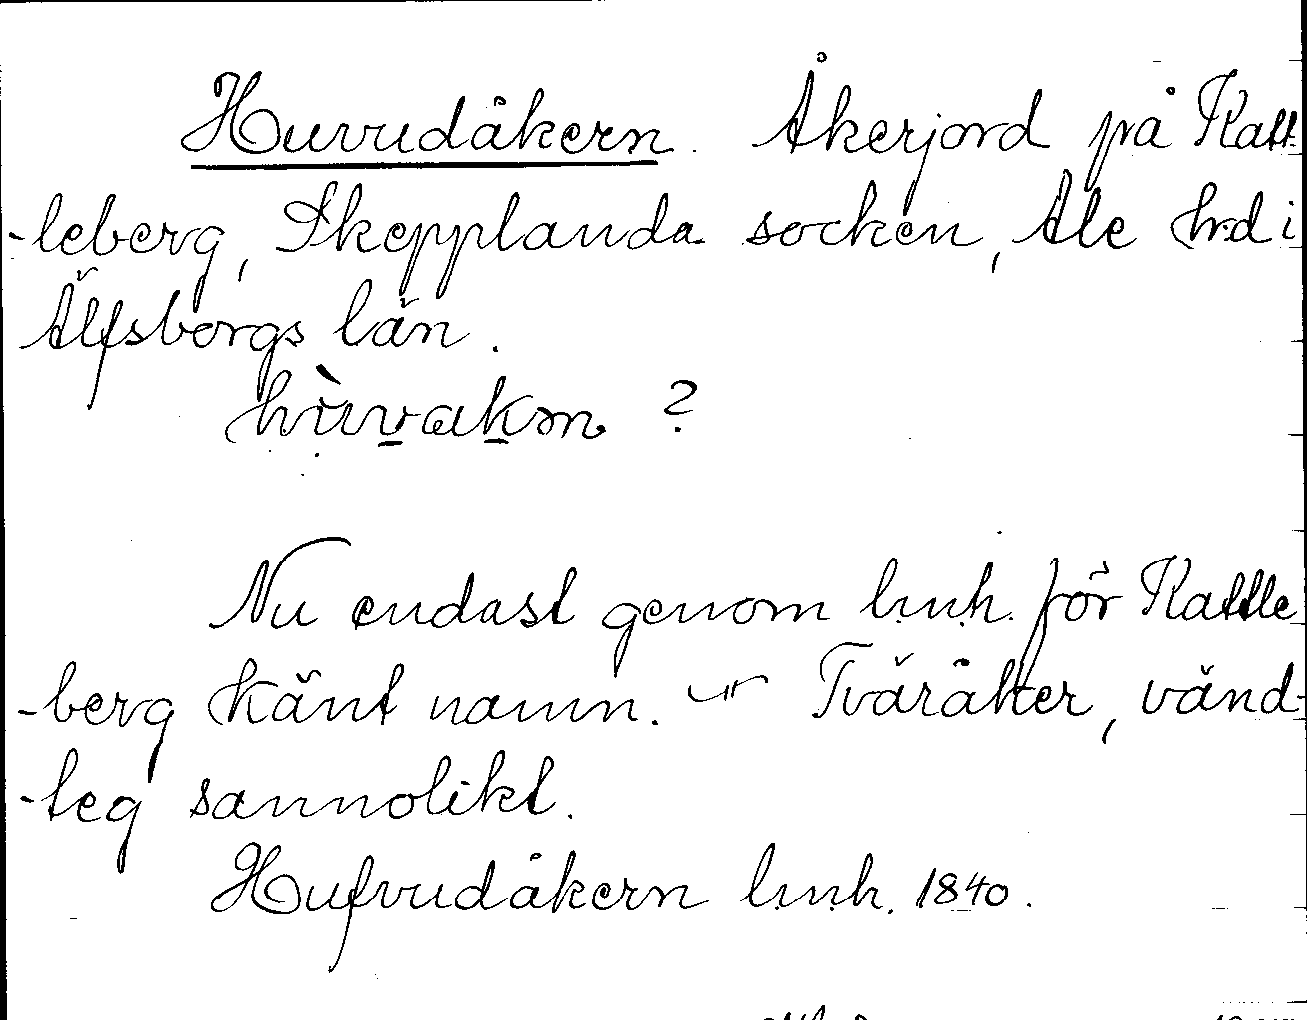 Huvudåkern. Åkerjord på Katt-
-leberg, Skepplanda socken, Ale hrd i
Älfsborgs län.
?
Nu endast genom l.u.h. för Kattle
-berg känt namn. Tväråker, vänd-
-teg sannolikt.
Hufvudåkern l.u.h. 1840.